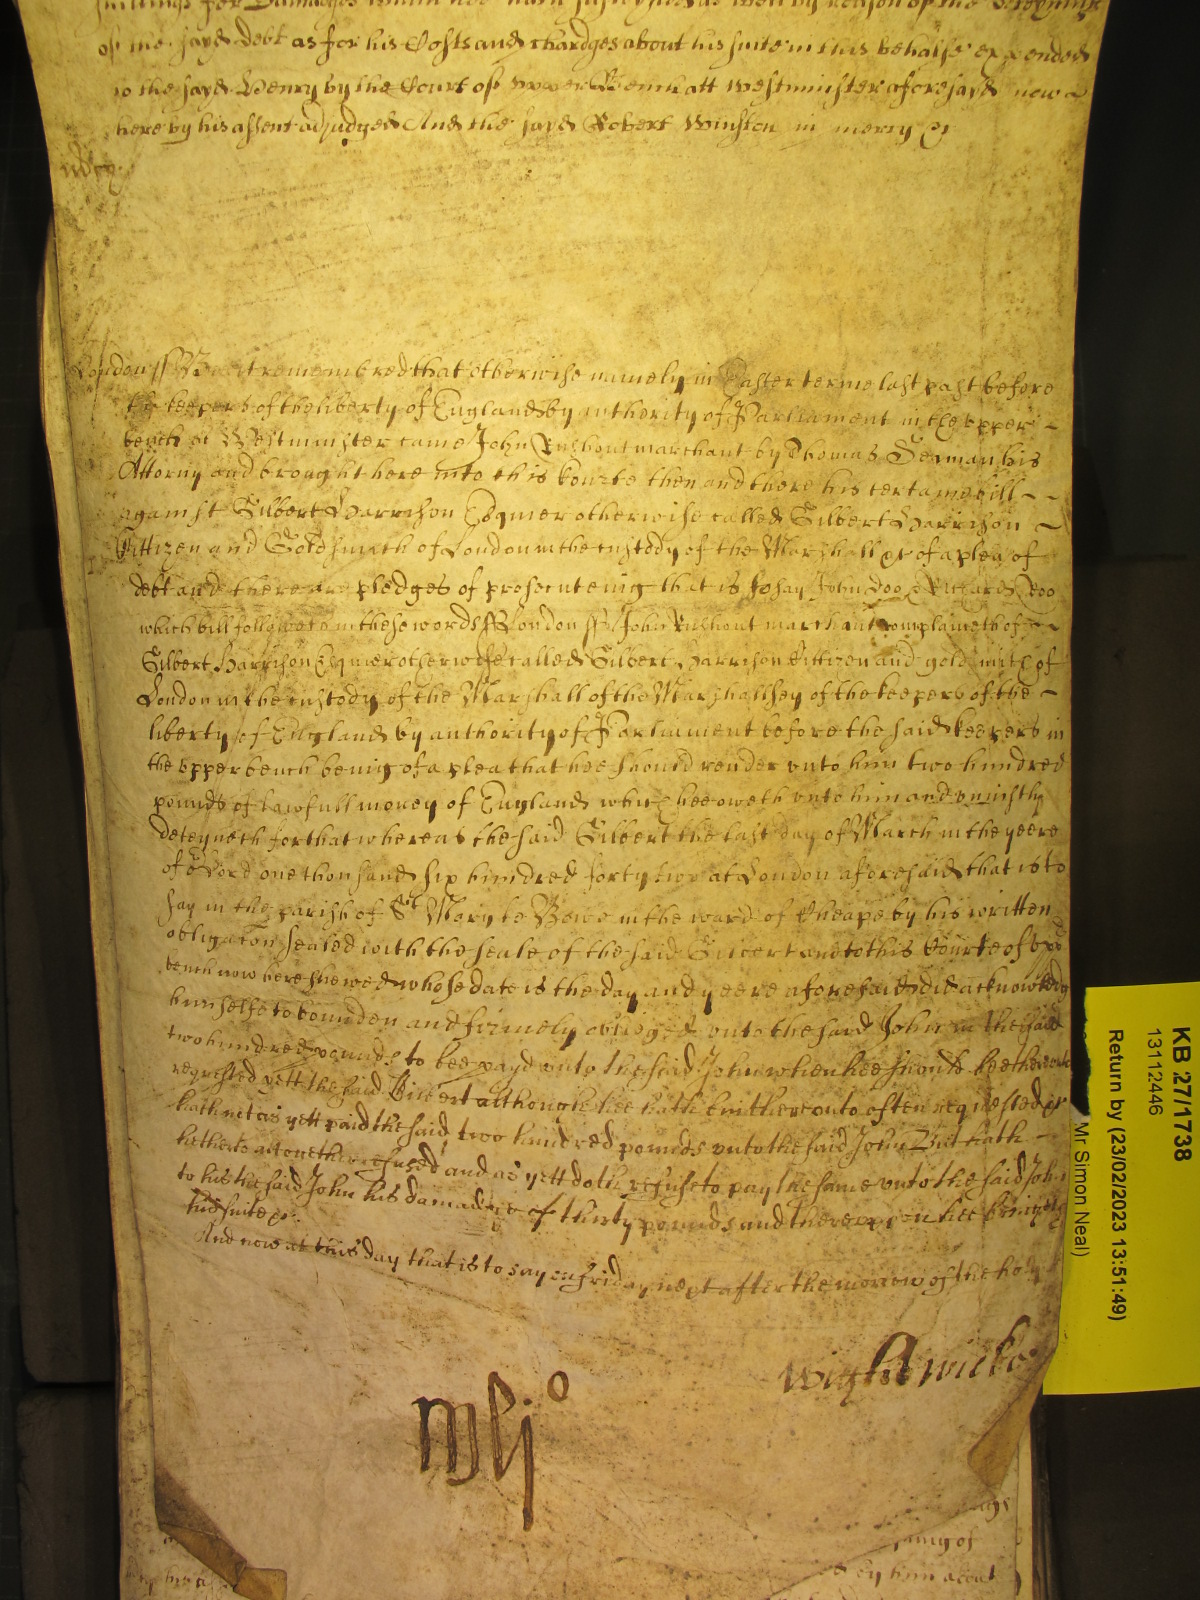 shillings for Damages which hee hath susteyned as well by reason of the deteyning
of the sayd debt as for his Costs and chardges about his suite in this behalfe expended
to the sayd Henry by the Court of upper Bench att Westminster aforesayd now
here by his assent adjudged And the sayd Robert Winston in mercy &c
London ss Bee it remembred that otherwise namely in Easter terme last past before
the keepers of the liberty of England by authority of Parliament in the upper
bench at Westminster came John Rushout marchant by Thomas Jerman his
Attorny and brought here into this Courte then and there his certaine bill
against Gilbert Harrison Esquier otherwise called Gilbert Harrison
Cittizen and Goldsmith of London in the custody of the Marshall &c of a plea of
debt and there are pledges of prosecuteing that is to say John Doo & Richard Roo
which bill followeth in these words ss London ss John Rushout marchant complaineth of
Gilbert Harrison Esquier otherwise called Gilbert Harrison Cittizen and goldsmith of
London in the custody of the Marshall of the Marshallsey of the keepers of the
liberty of England by authority of Parliament before the said keepers in
the upper bench being of a plea that hee should render unto him two hundred
pounds of lawfull money of England which hee oweth unto him and uniustly
deteyneth for that whereas the said Gilbert the last day of March in the yeere
of o Lord one thousand six hundred forty two at London aforesaid that is to
say in the parish of St Mary le Bowe in the ward of Cheape by his written
obligacon sealed with the seale of the said Gilbert and to this Courte of upp
bench now here shewed whose date is the day and yeere aforesaid did acknowledg
himselfe to bounden and firmely obliged unto the said John in the said
two hundred pounds to bee payd unto the said John when hee should bee thereunto
requested yett the said Gilbert although hee hath bin thereunto often requested &c
hath not as yett paid the said two hundred pounds unto the said John But hath
hitherto altogether refused and as yett doth refuse to pay the same unto the said John
to his the said John his damadge of thirty pounds and thereupon hee bringeth
his suite &c.
And now at this day that is to say on friday next after the morrow of the holy
Wightwicke
KB 27/1738
13112446
Return by (23/02/2023 13:51:49)
Mr Simon Neal)